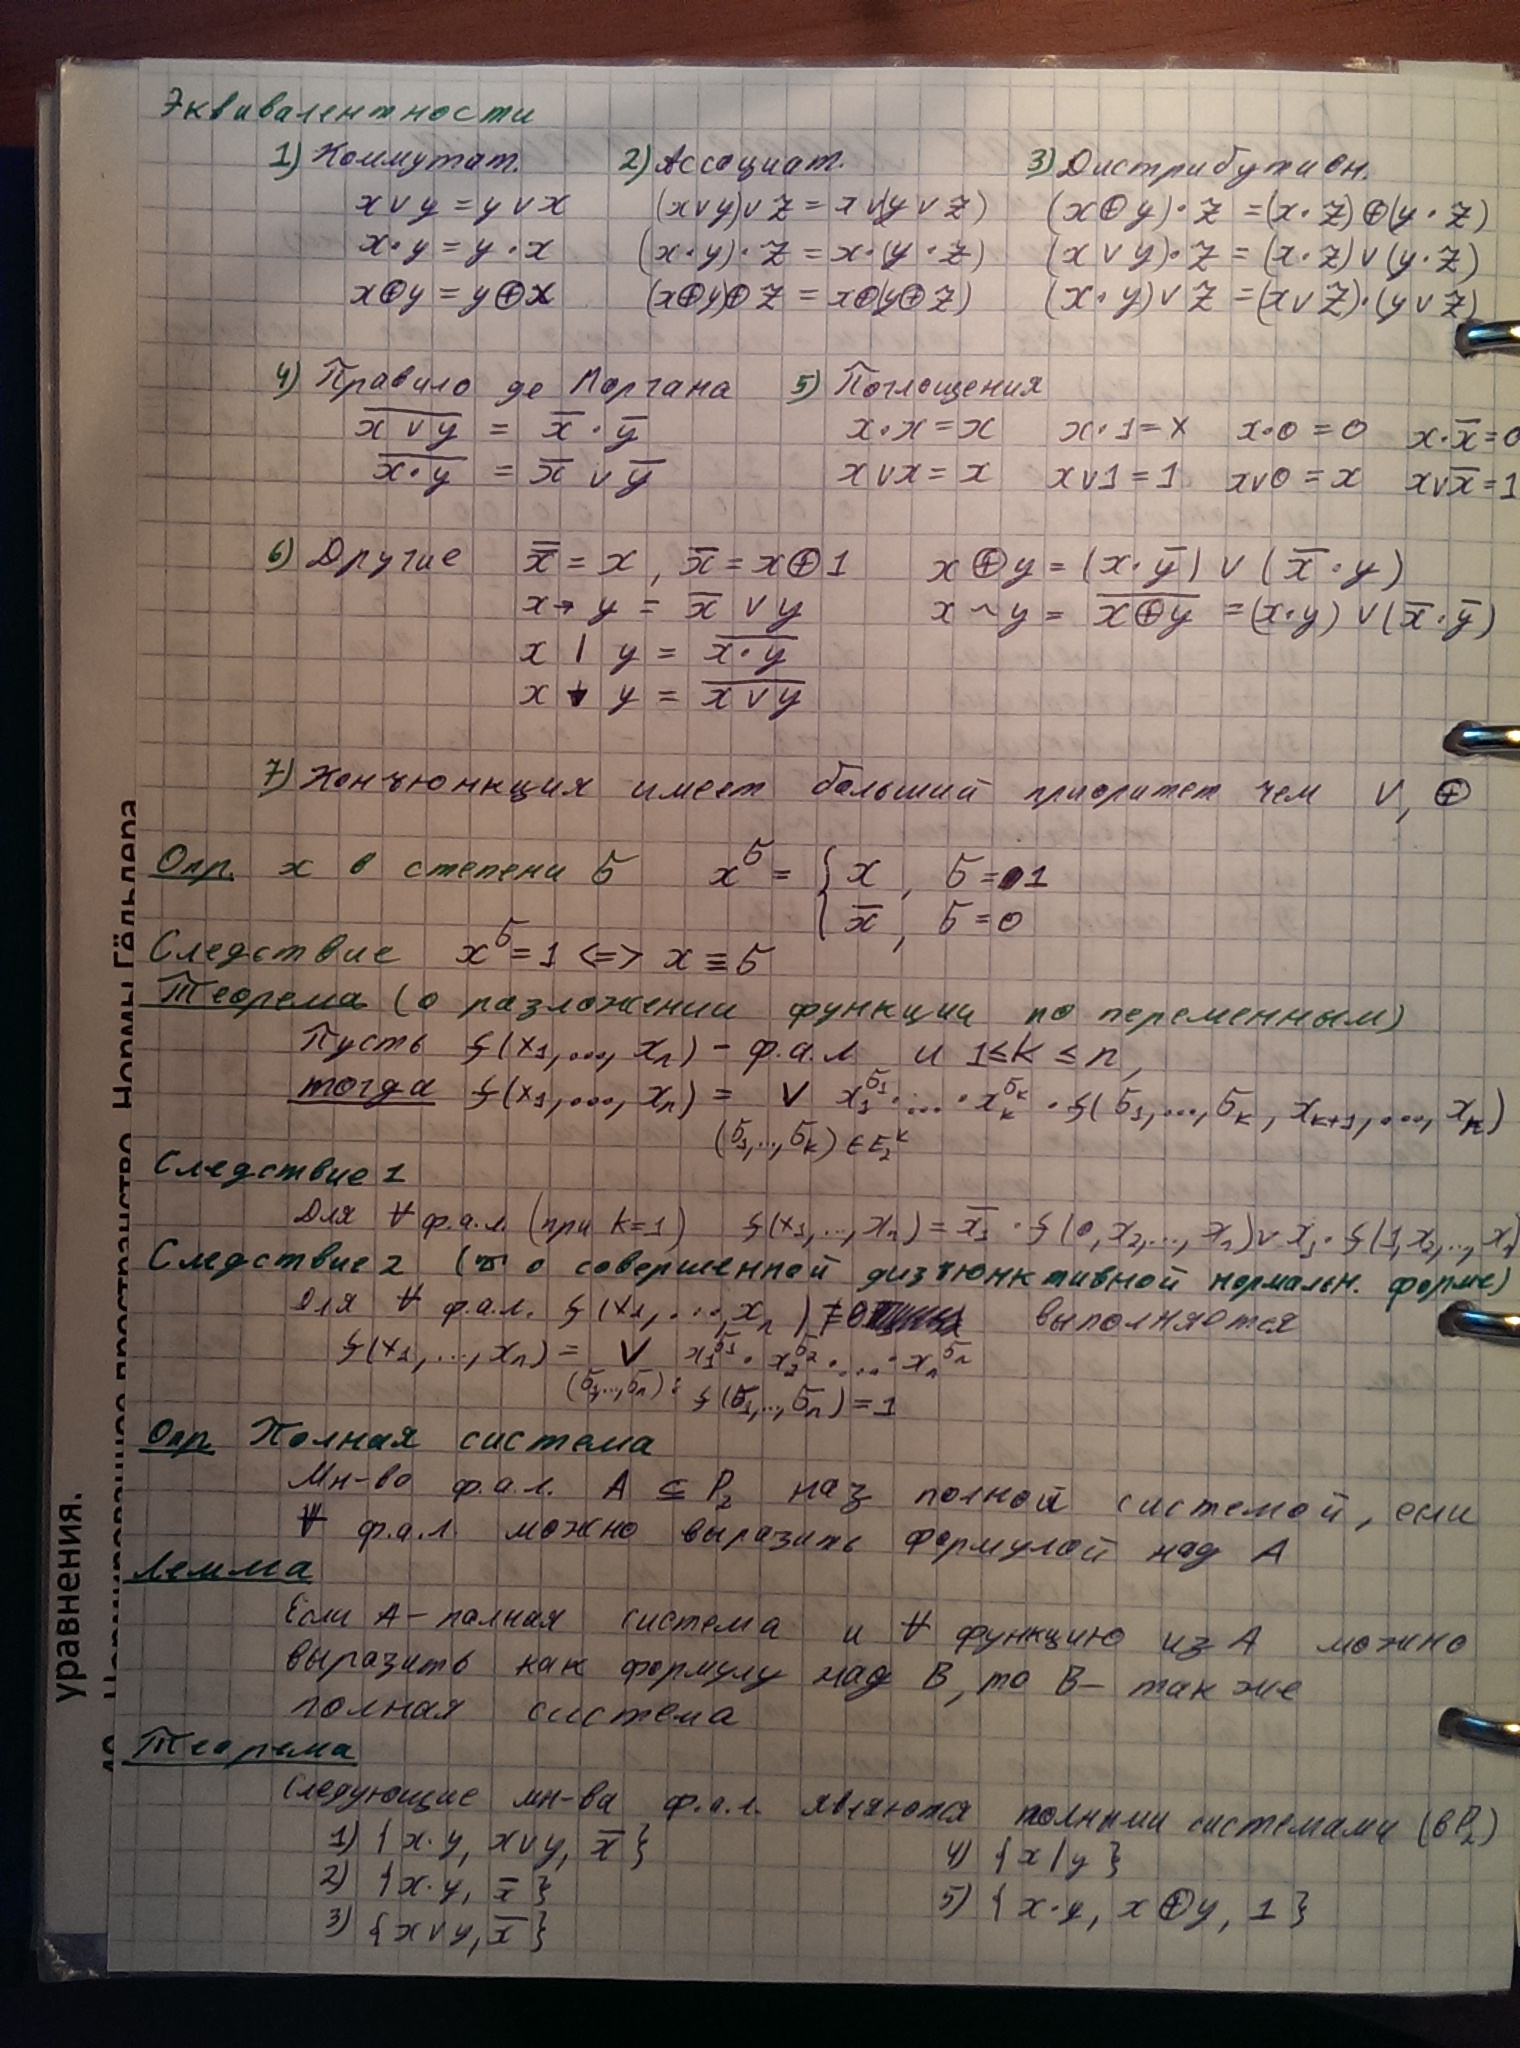 Эквивалентности
1) Коммутат. 2) Ассоциат. 3) Дистрибутивн.
x∨y = y∨x (x∨y)∨z = x∨(y∨z) (x⊕y)·z = (x·z)⊕(y·z)
x·y = y·x (x·y)·z = x·(y·z) (x∨y)·z = (x·z)∨(y·z)
x⊕y = y⊕x (x⊕y)⊕z = x⊕(y⊕z) (x·y)∨z = (x∨z)·(y∨z)
4) Правило де Моргана 5) Поглощения
x̅ ̅∨̅ ̅y̅ = x̅·y̅ x·x = x x·1 = x x·0 = 0 x·x̅ = 0
x̅·̅y̅ = x̅∨y̅ x∨x = x x∨1 = 1 x∨0 = x x∨x̅ = 1
6) Другие x̿ = x, x̅ = x⊕1 x⊕y = (x·y̅)∨(x̅·y)
x→y = x̅∨y x~y = x̅⊕̅y̅ = (x·y)∨(x̅·y̅)
x | y = x̅·̅y̅
x ↓ y = x̅∨̅y̅
7) Конъюнкция имеет больший приоритет чем ∨, ⊕
Опр. x в степени σ x^σ = { x, σ=1
x̅, σ=0
Следствие x^σ = 1 <=> x ≡ σ
Теорема (о разложении функции по переменным)
Пусть f(x₁,...,xₙ) – ф.а.л и 1≤k≤n,
тогда f(x₁,...,xₙ) = ∨ x₁^σ₁·...·xₖ^σₖ·f(σ₁,...,σₖ, xₖ₊₁,...,xₙ)
(σ₁,...,σₖ)∈E₂ᵏ
Следствие 1
Для ∀ ф.а.л. (при k=1) f(x₁,...,xₙ) = x̅₁·f(0,x₂,...,xₙ)∨x₁·f(1,x₂,...,xₙ)
Следствие 2 (о совершенной дизъюнктивной нормальн. форме)
Для ∀ ф.а.л. f(x₁,...,xₙ)≢0 выполняется
f(x₁,...,xₙ) = ∨ x₁^σ₁·x₂^σ₂·...·xₙ^σₙ
(σ₁,...,σₙ): f(σ₁,...,σₙ)=1
Опр Полная система
Мн-во ф.а.л. A ⊆ P₂ наз полной системой, если
∀ ф.а.л. можно выразить формулой над A
Лемма
Если A – полная система и ∀ функцию из A можно
выразить как формулу над B, то B – так же
полная система
Теорема
Следующие мн-ва ф.а.л. являются полными системами (в P₂)
1) {x·y, x∨y, x̅} 4) {x|y}
2) {x·y, x̅} 5) {x·y, x⊕y, 1}
3) {x∨y, x̅}
уравнения.
Нормы Гёльдера